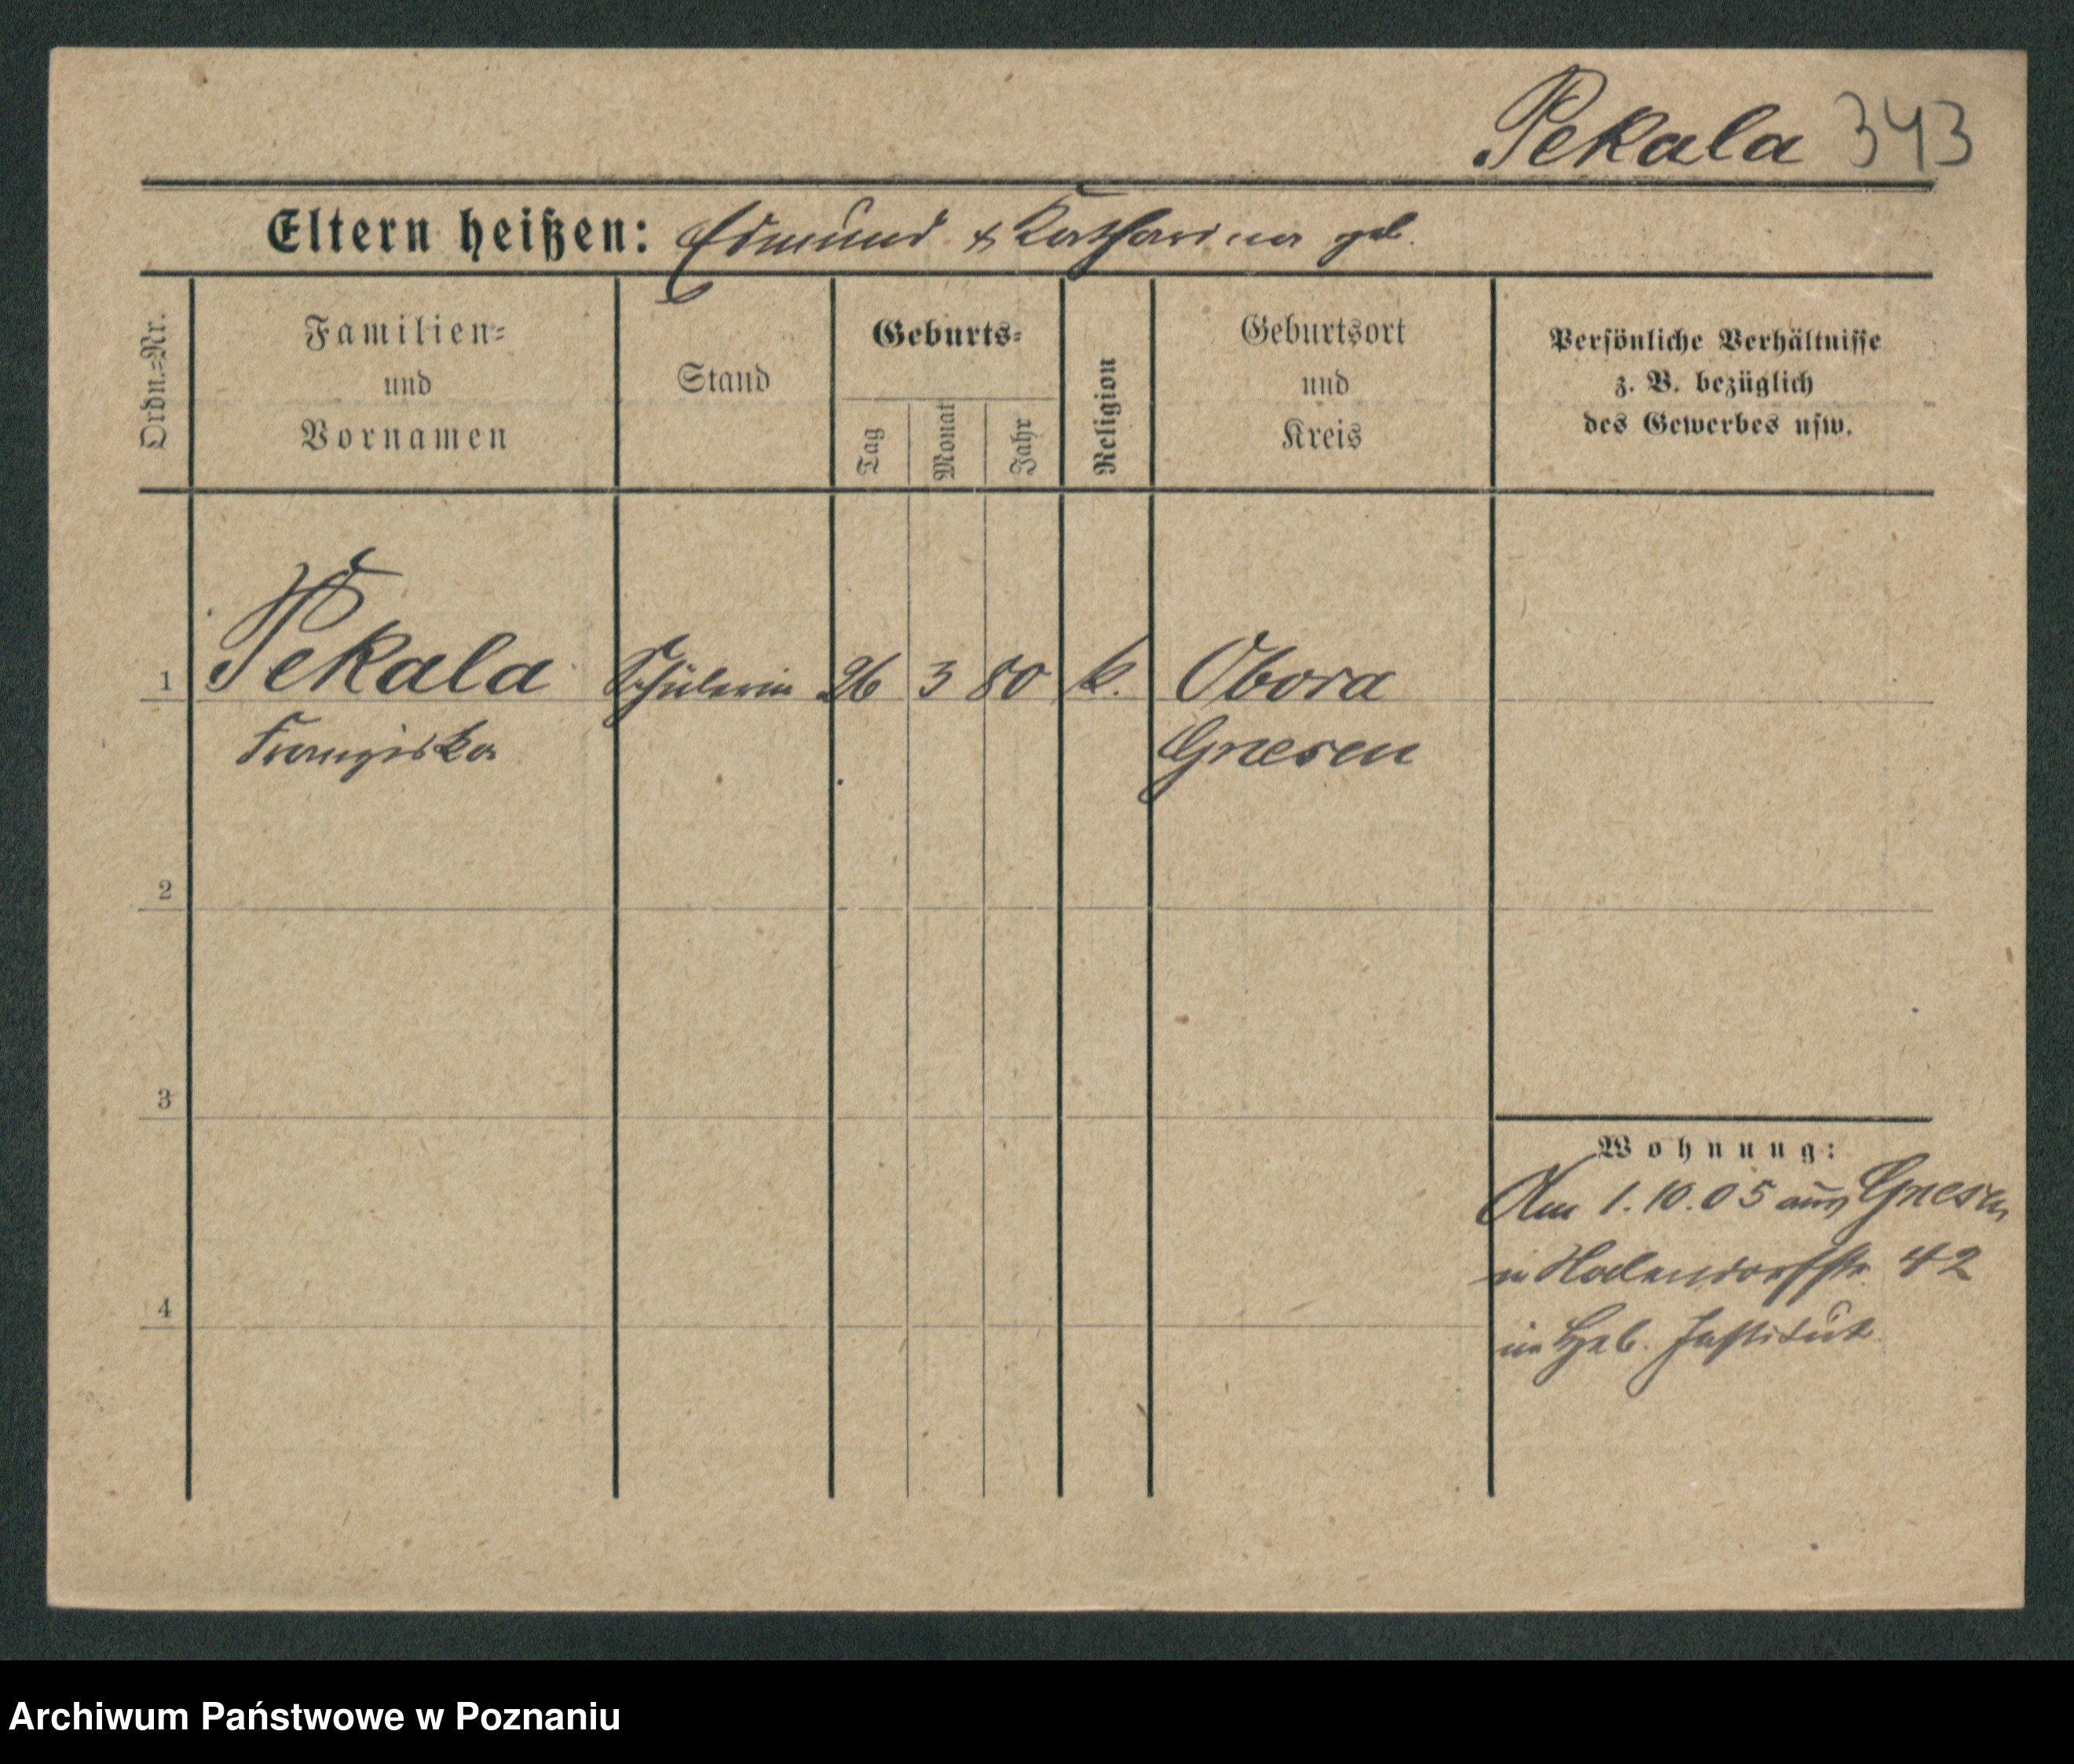 Pekala 343
Eltern heißen: Edmund & Katharina geb.
Ordn.-Nr.
Familien-
und
Vornamen
Stand
Geburts-
Tag
Monat
Jahr
Religion
Geburtsort
und
Kreis
Persönliche Verhältnisse
z. B. bezüglich
des Gewerbes usw.
1 Pekala Schülerin 26 3 80 k. Obora
Franziska Gnesen
2
3
Wohnung:
Am 1.10.05 aus Gnesen
in 42
4
im Heb. Institut
Archiwum Państwowe w Poznaniu